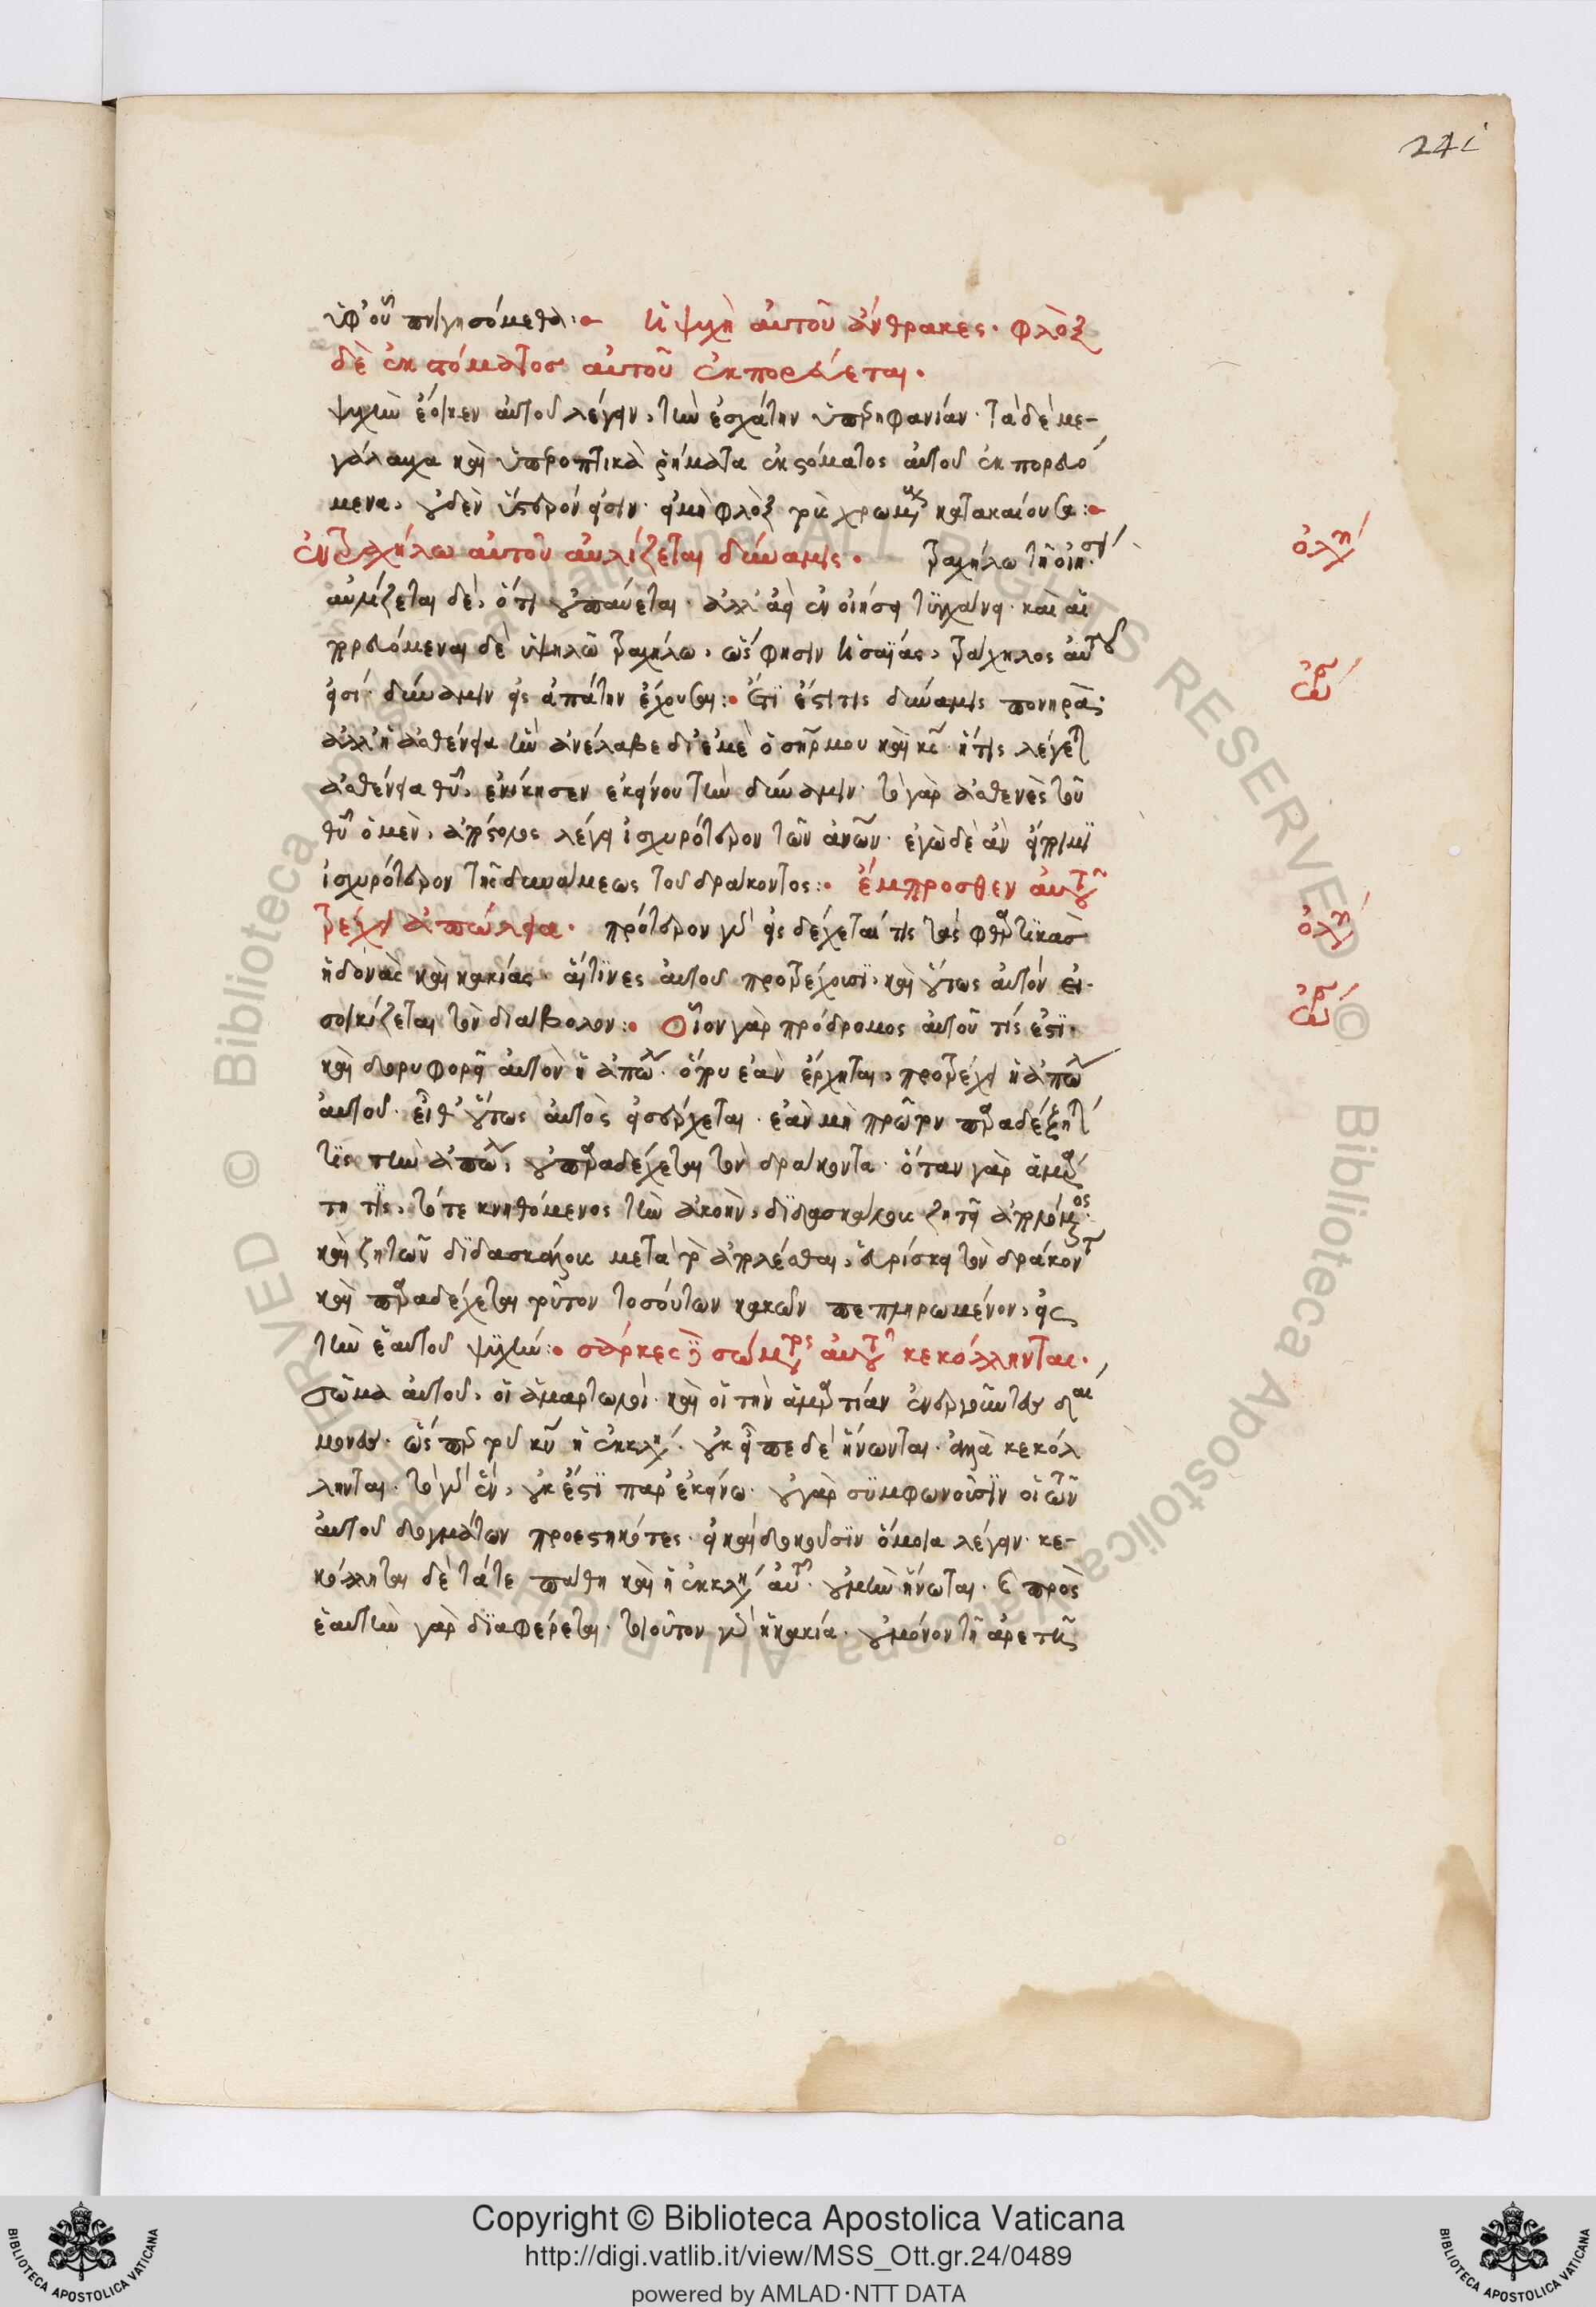 241
ὑφ' οὗ πνιγησόμεθα:• ἡ ψυχὴ αὐτοῦ ἄνθρακες· φλὸξ
δὲ ἐκ στόματος αὐτοῦ ἐκπορεύεται·
ψυχὴν ἔοικεν αὐτοῦ λέγειν, τὴν ἐσχάτην ὑπερηφανίαν· τὰ δὲ με-
γάλαυχα καὶ ὑπεροπτικὰ ῥήματα ἐκ στόματος αὐτοῦ ἐκπορευό
μενα, οὐδὲν ὕστερόν εἰσιν· εἰ μὴ φλὸξ κατακαίουσα:•
ἐν τραχήλω αὐτοῦ αὐλίζεται δύναμις· τραχήλω τῆ οἰήσει
αὐλίζεται δὲ, ὅτι οὐ παύεται· ἀλλ' ἀεὶ ἐν οἰήσει τυγχάνει· καὶ αἱ
πορευόμεναι δὲ ὑψηλῶ τραχήλω, ὥς φησιν ἡσαΐας, τράχηλος αὐτοῦ
εἰσί· δύναμιν εἰς ἀπάτην ἔχουσαι:• ἔτι ἐστί τις δύναμις πονηρὰ·
ἀλλ' ἡ ἀσθένεια ἣν ἀνέλαβε δι' ἐμὲ ὁ σηρ μου καὶ κς· ἥτις λέγεται
ἀσθένεια θυ, ἐνίκησεν ἐκείνου τὴν δύναμιν· τὸ γὰρ ἀσθενὲς τοῦ
θυ ὁ μὲν, ἀπόστολος λέγει ἰσχυρότερον τῶν ἀνων· ἐγὼ δὲ ἂν εἴποιμι
ἰσχυρότερον τῆς δυνάμεως τοῦ δράκοντος:• ἔμπροσθεν αὐτοῦ
τρέχει ἀπώλεια· πρότερον γὰρ εἰσδέχεταί τις τὰς φθαρτικὰς
ἡδονὰς καὶ κακίας· αἵτινες αὐτοῦ προτρέχουσι, καὶ οὕτως αὐτόν εἰ-
σοικίζεται τὸν διάβολον:• Οἷον γὰρ πρόδρομος αὐτοῦ τίς ἐστι·
καὶ δορυφορεῖ αὐτὸν ἡ ἀπώλεια· ὅπου ἐὰν ἔρχηται, προτρέχει ἡ ἀπώλεια
αὐτοῦ· εἶθ' οὕτως αὐτὸς εἰσέρχεται· ἐὰν μὴ πρῶτον παραδέξηται
τις τὴν ἀπώλειαν, οὐ παραδέχεται τὸν δράκοντα· ὅταν γὰρ ἁμάρ
τη τις, τότε κνηθόμενος τὴν ἀκοὴν, διδασκάλους ζητεῖ ἀπολλύμενος·
καὶ ζητῶν διδασκάλους μετὰ τὸ ἀπολέσθαι, εὑρίσκει τὸν δράκοντα
καὶ παραδέχεται τοῦτον τοσούτων κακῶν πεπληρωμένον, εἰς
τὴν ἑαυτοῦ ψυχήν:• σάρκες δὲ σώματος αὐτοῦ κεκόλληνται·
σῶμα αὐτοῦ, οἱ ἁμαρτωλοί· καὶ οἱ τὴν ἁμαρτίαν ἐνεργοῦντες δαί
μονες· ὥσπερ τοῦ κυ ἡ ἐκκλησία· οὐκ εἶπε δὲ ἥνωνται· ἀλλὰ κεκόλ
ληνται· τὸ γὰρ ἓν, οὐκ ἔστι παρ' ἐκείνω· οὐ γὰρ συμφωνοῦσιν οἱ τῶν
αὐτοῦ δογμάτων προεστηκότες· εἰ καὶ δοκοῦσιν ὅμοια λέγειν· κε-
κόλληται δὲ τά τε πάθη καὶ ἡ ἐκκλησία αὐτοῦ· οὐ μὴν ἥνωται· πρὸς
ἑαυτὴν γὰρ διαφέρεται· τοιοῦτον γὰρ ἡ κακία· οὐ μόνον τῆ ἀρετῆ
Copyright © Biblioteca Apostolica Vaticana
http://digi.vatlib.it/view/MSS_Ott.gr.24/0489
powered by AMLAD·NTT DATA
BIBLIOTECA APOSTOLICA VATICANA
BIBLIOTECA APOSTOLICA VATICANA